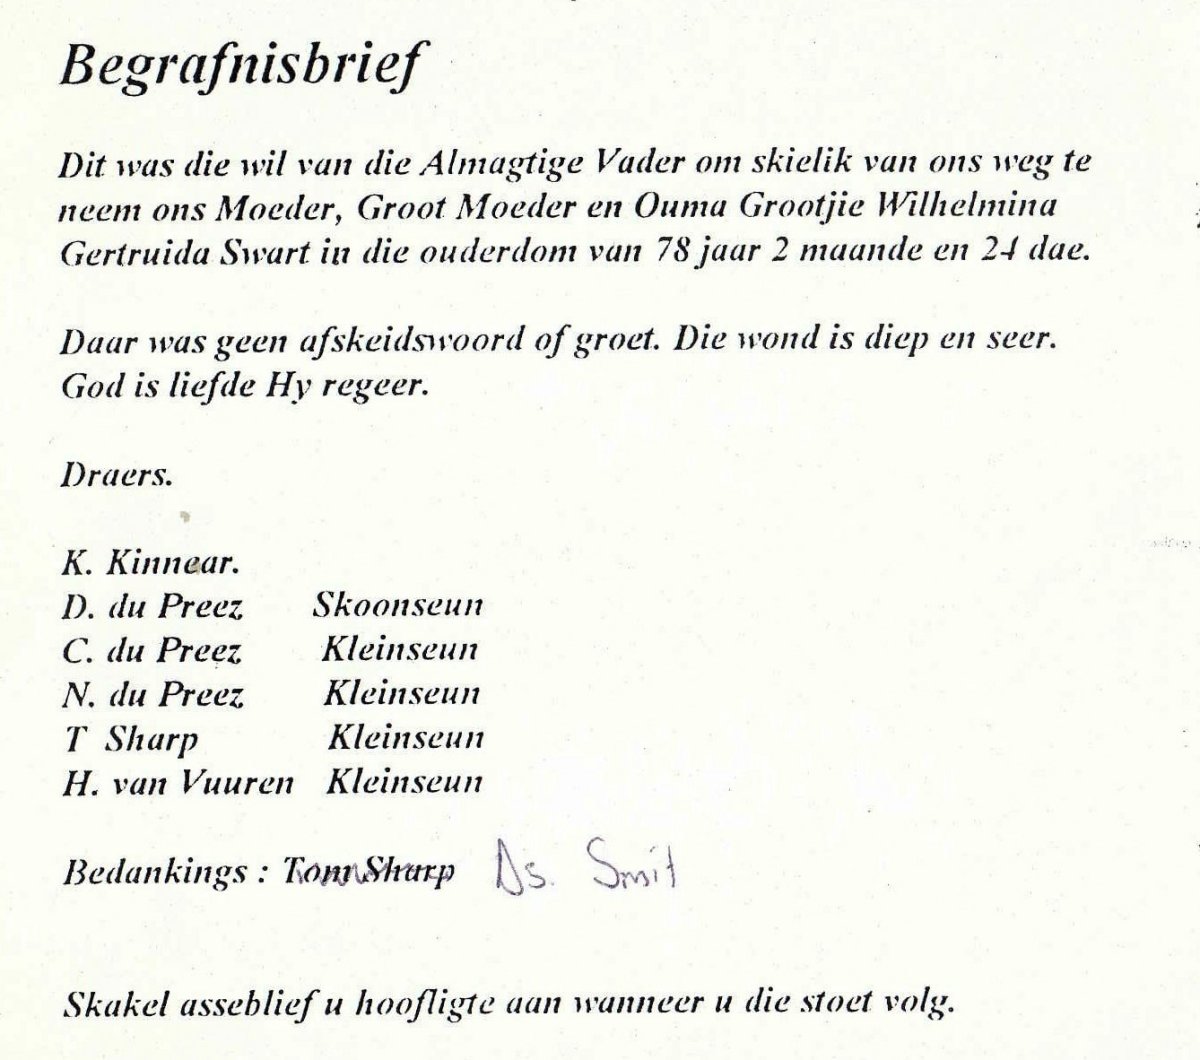 Begrafnisbrief
Dit was die wil van die Almagtige Vader om skielik van ons weg te
neem ons Moeder, Groot Moeder en Ouma Grootjie Wilhelmina
Gertruida Swart in die ouderdom van 78 jaar 2 maande en 24 dae.
Daar was geen afskeidswoord of groet. Die wond is diep en seer.
God is liefde Hy regeer.
Draers.
K. Kinnear.
D. du Preez Skoonseun
C. du Preez Kleinseun
N. du Preez Kleinseun
T Sharp Kleinseun
H. van Vuuren Kleinseun
Bedankings : Tom Sharp Ds. Smit
Skakel asseblief u hoofligte aan wanneer u die stoet volg.